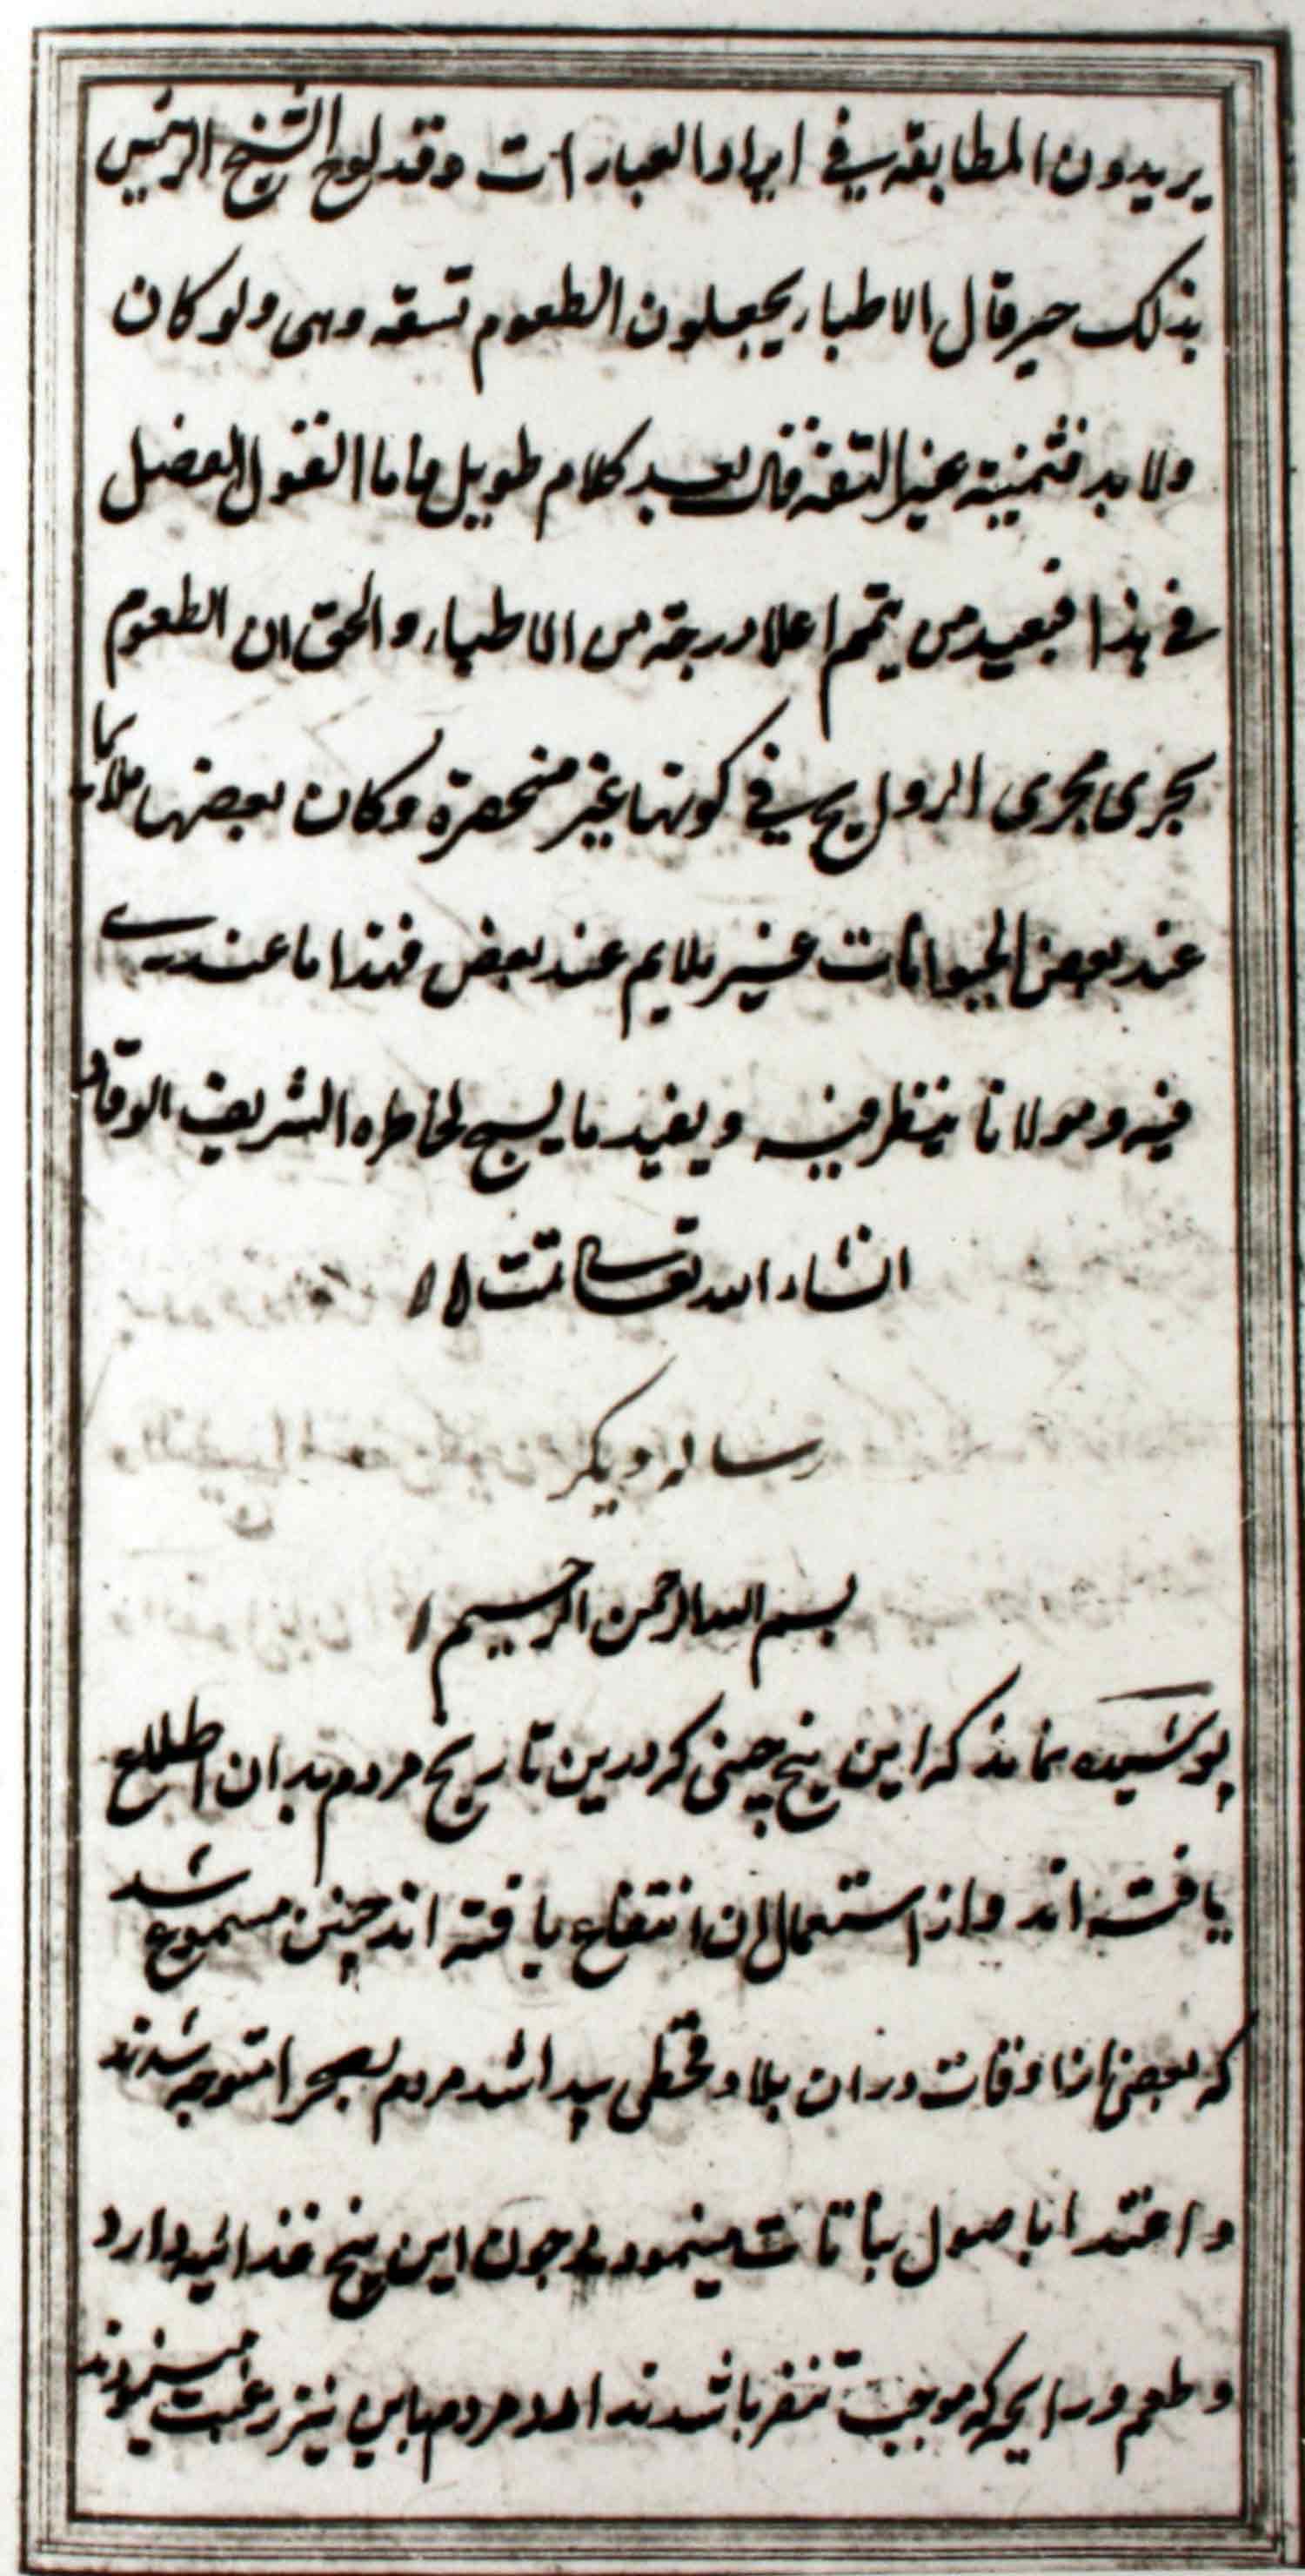 یریدون المطابقه فی ایراد العبارات وقد لوح الشیخ الرئیس
بذلک حیر قال الاطبا یجعلون الطعوم تسعه وهی ولو کان
ولا بد فثمنیته غیر التفه قال بعد کلام طویل فاما القول الفصل
فی هذا فبعید من یتمم اعلا درجة من الاطباء والحق ان الطعوم
یجری مجری الروایح فی کونها غیر منحصرة وکان بعضها ملایما
عند بعض الحیوانات غیر ملایم عند بعض فهذا ما عندی
فیه ومولانا ینظر فیه ویفید ما یسبح لخاطره الشریف الوقاد
انشاء الله تعالی تمت
رساله دیکر
بسم الله الرحمن الرحیم
پوشیده نماند که این بیخ چینی که درین تاریخ مردم بدان اطلاع
یافته اند و از استعمال ان انتفاع یافته اند چنین مسموع شد
که بعضی از اوقات دران بلاد قحطی پیدا شد مردم بصحرا متوجه شدند
و اغتدا باصول نباتات مینمودند جون این بیخ غذائیه دارد
و طعم و رایحه که موجب تنفر باشد ندارد مردم باین نیز رغبت مینمودند